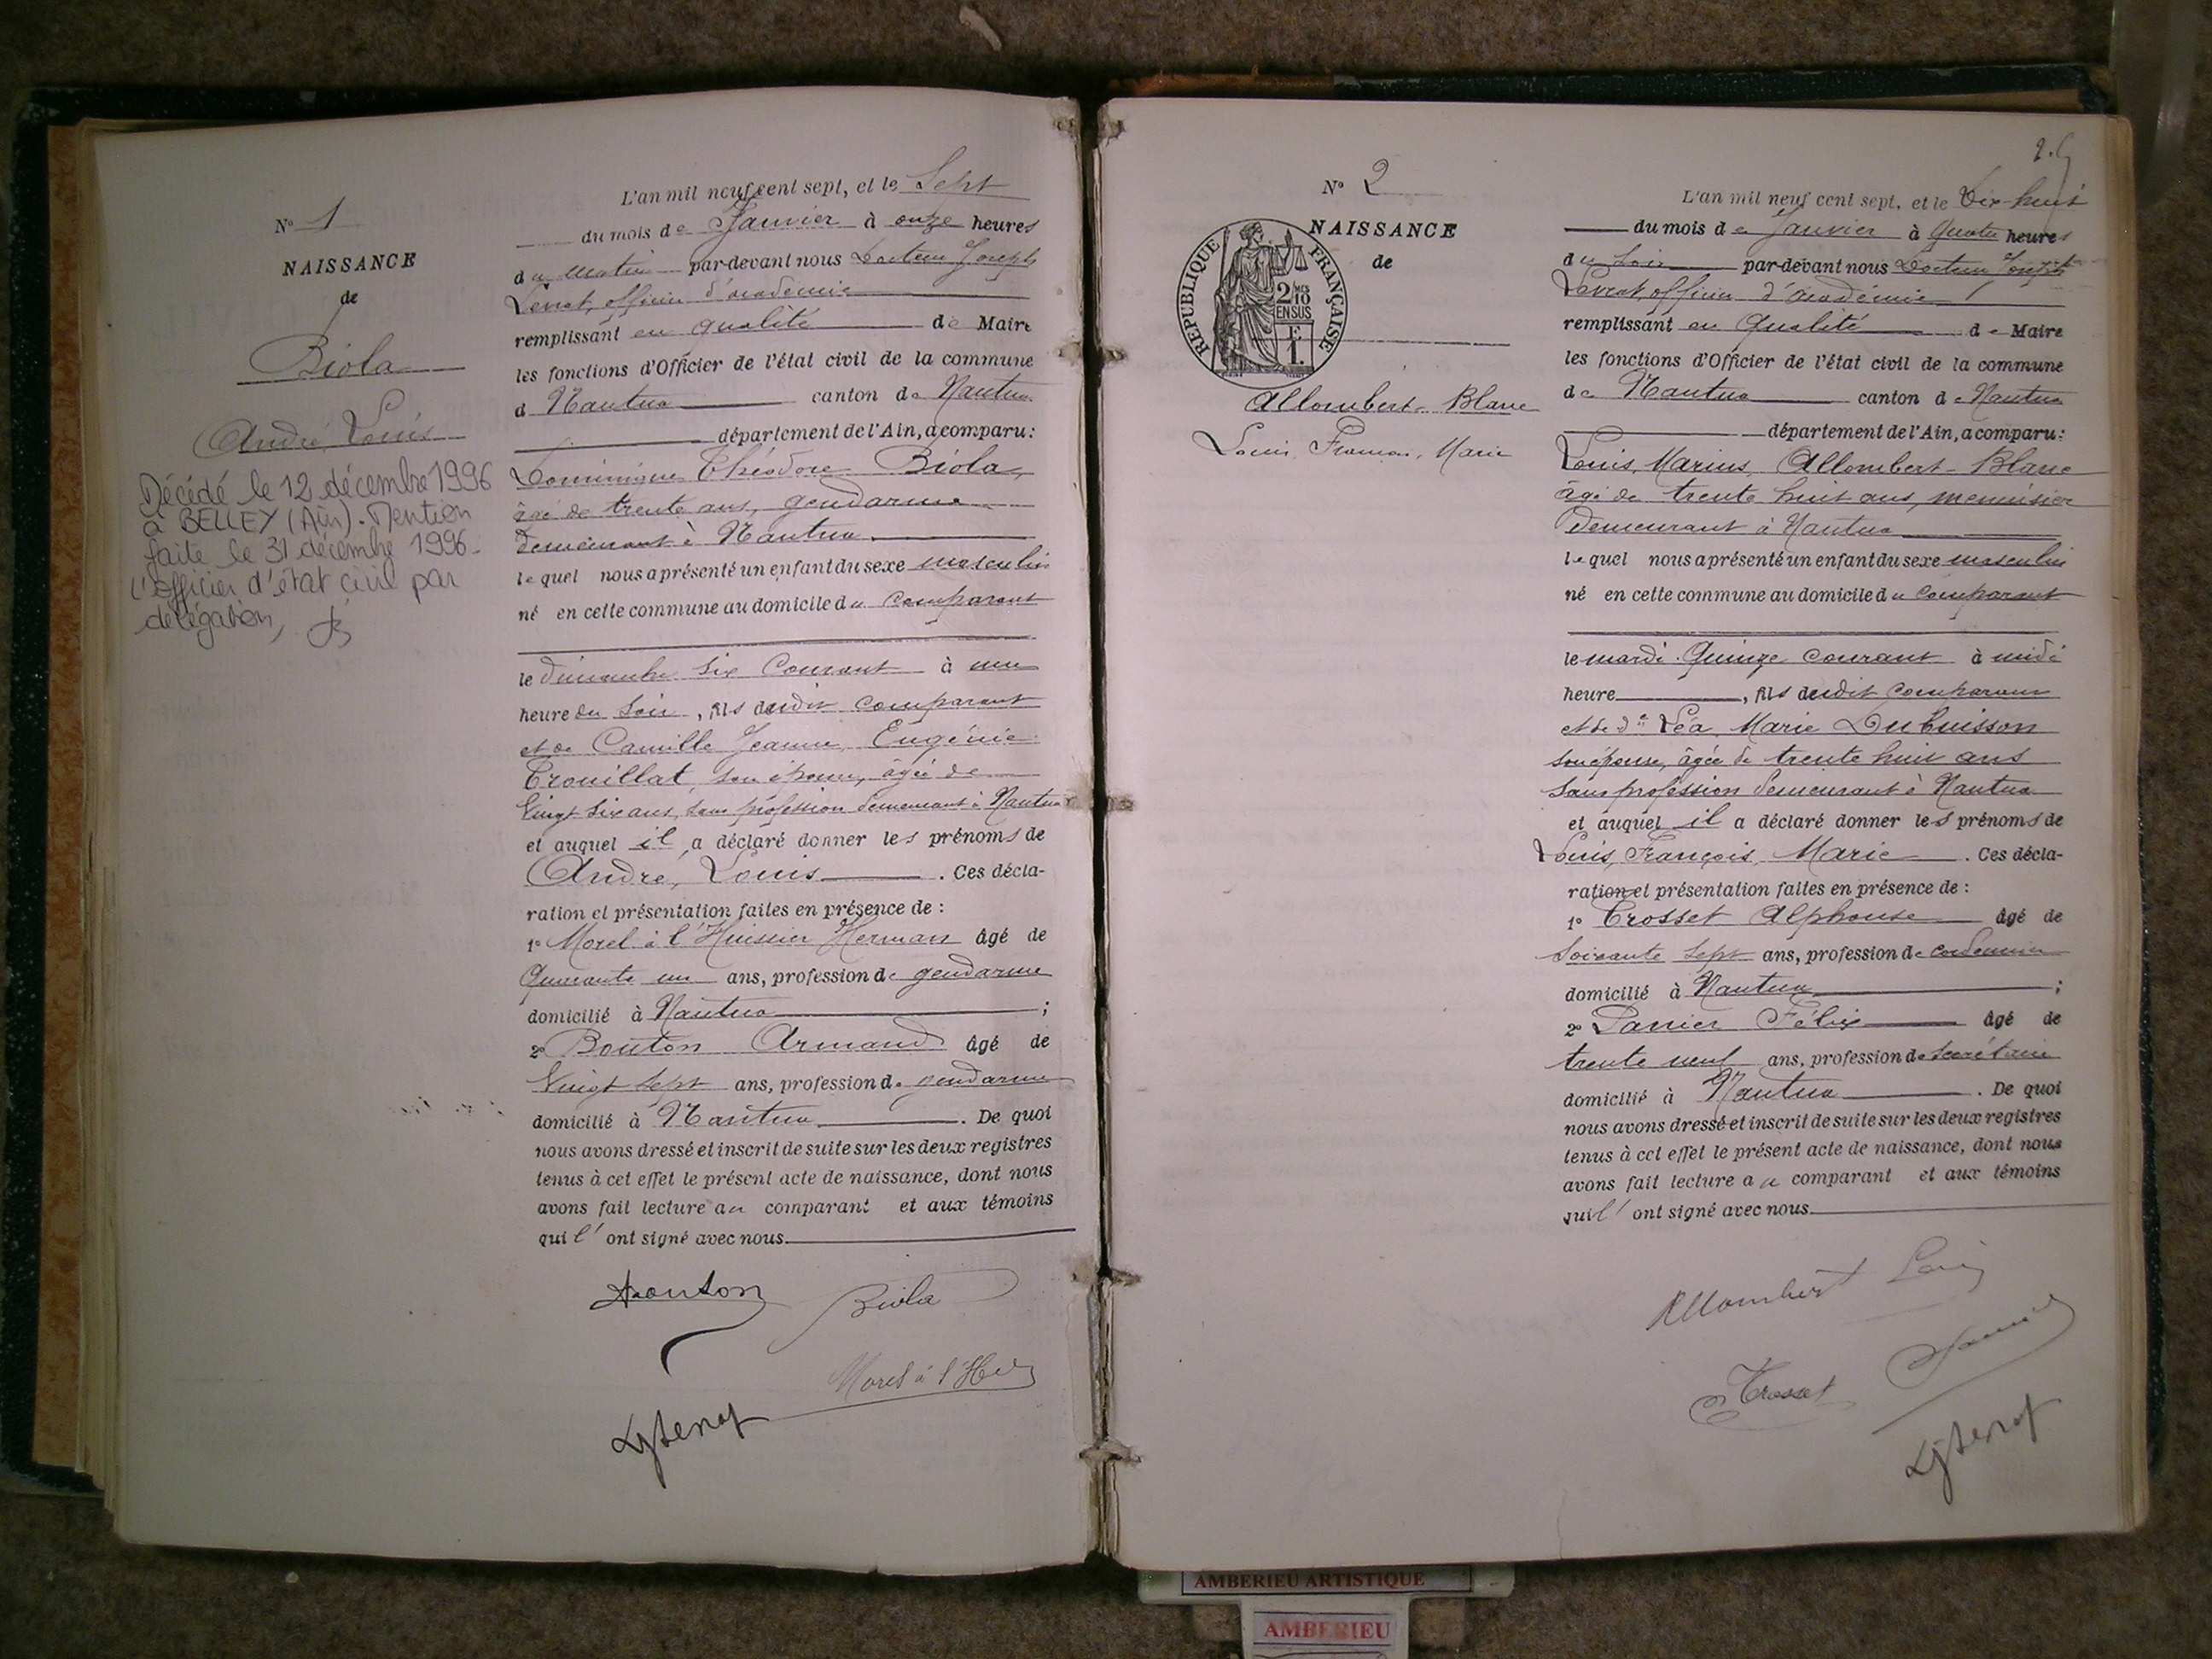 N° 1
NAISSANCE
de
Biola
André, Louis
Décédé le 12 décembre 1996
à BELLEY (Ain). Mention
faite le 31 décembre 1996.
L'Officier d'état civil par
délégation,
L'an mil neuf cent sept, et le Sept
du mois de Janvier à onze heures
du matin par-devant nous Docteur Joseph
officier d'académie
remplissant en qualité de Maire
les fonctions d'Officier de l'état civil de la commune
d Nantua canton de Nantua
département de l'Ain, a comparu:
Dominique Théodore Biola,
âgé de trente ans, gendarme
demeurant à Nantua
lequel nous a présenté un enfant du sexe masculin
né en cette commune au domicile du comparant
le dimanche six courant à une
heure du soir, fils dudit comparant
et de Camille Jeanne Eugénie
Trouillat, son épouse, âgée de
vingt six ans, sans profession demeurant à Nantua
et auquel il a déclaré donner les prénoms de
André, Louis. Ces décla-
ration et présentation faites en présence de :
1° Morel à l'Huissier Herman âgé de
Quarante un ans, profession de gendarme
domicilié à Nantua ;
2° Bouton Armand âgé de
Vingt sept ans, profession de gendarme
domicilié à Nantua. De quoi
nous avons dressé et inscrit de suite sur les deux registres
tenus à cet effet le présent acte de naissance, dont nous
avons fait lecture au comparant et aux témoins
qui l'ont signé avec nous.
Bouton Biola
Morel à l'H
2.
N° 2
NAISSANCE
de
RÉPUBLIQUE FRANÇAISE
2/10
EN SUS
Allombert-Blanc
Louis, François, Marie
L'an mil neuf cent sept, et le Dix-huit
du mois de Janvier à quatre heures
du soir par-devant nous Docteur Joseph
officier d'académie
remplissant en qualité de Maire
les fonctions d'Officier de l'état civil de la commune
de Nantua canton de Nantua
département de l'Ain, a comparu:
Louis, Marius Allombert-Blanc
âgé de trente huit ans, menuisier
Demeurant à Nantua
lequel nous a présenté un enfant du sexe masculin
né en cette commune au domicile du comparant
le mardi quinze courant à midi
heure, fils dudit comparant
et de de Léa Marie Dubuisson
son épouse, âgée de trente huit ans
sans profession demeurant à Nantua
et auquel il a déclaré donner les prénoms de
Louis, François, Marie. Ces décla-
ration et présentation faites en présence de :
1° Trosset Alphonse âgé de
soixante sept ans, profession de cordonnier
domicilié à Nantua ;
2° Félix âgé de
trente neuf ans, profession de secrétaire
domicilié à Nantua. De quoi
nous avons dressé et inscrit de suite sur les deux registres
tenus à cet effet le présent acte de naissance, dont nous
avons fait lecture au comparant et aux témoins
qui l'ont signé avec nous.
Allombert Louis
Trosset
AMBERIEU ARTISTIQUE
AMBERIEU